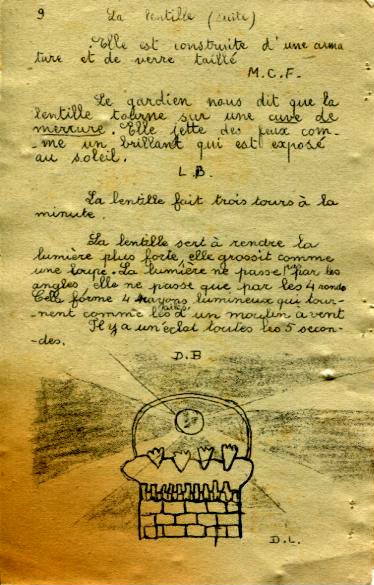 9 La lentille (suite)
Elle est construite d'une arma
ture et de verre taillé
M.C.F.
Le gardien nous dit que la
lentille tourne sur une cuve de
mercure. Elle jette des feux com-
-me un brillant qui est exposé
au soleil.
L.B.
La lentille fait trois tours à la
minute.
La lentille sert à rendre la
lumière plus forte, elle grossit comme
une loupe. La lumière ne passe pas par les
angles, elle ne passe que par les 4 ronds
Elle forme 4 rayons lumineux qui tour-
-nent comme les ailes d'un moulin à vent
Il y a un éclat toutes les 5 secon-
-des.
D.B
D.L.